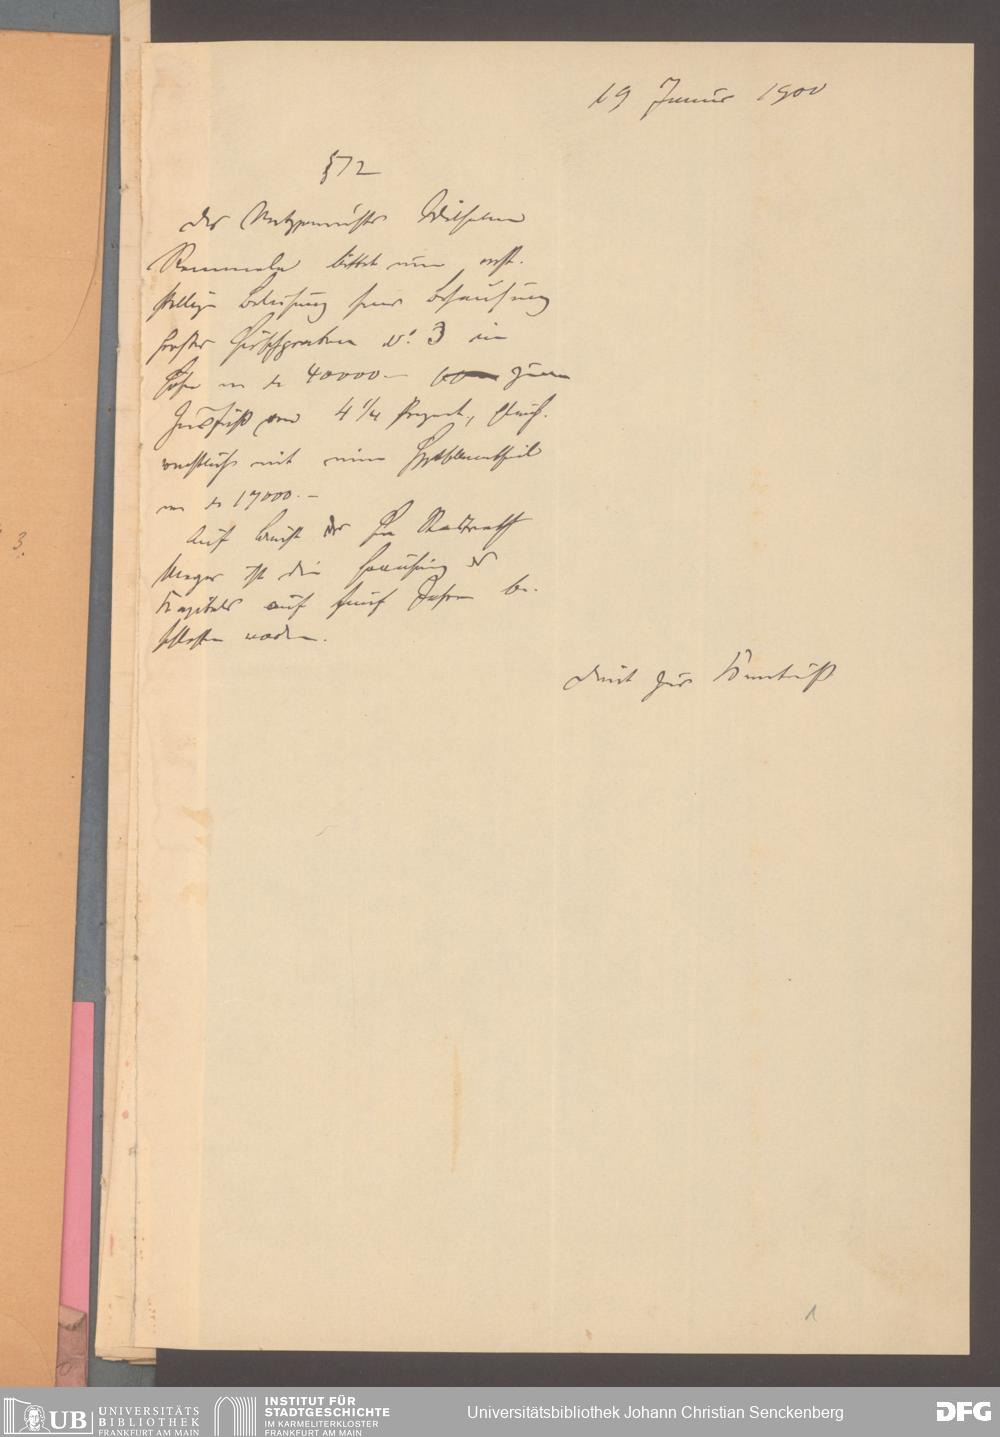 19 Januar 1900
§72
Der Metzgermeister Wilhelm
Remmele bittet um erst-
stellige Beleihung seiner Behausung
Großer Hirschgraben N° 3 in
Höhe von M 40000.— zum
Zinsfuß von 4 1/4 Prozent, gleich-
mit einem
von M 17000.—
Auf Bericht des Hrn Stadtrath
Meyer ist die Hergabe des
Kapitals auf fünf Jahre be-
schlossen worden.
Dient zur Kenntniß
3.
1
UB UNIVERSITÄTS
BIBLIOTHEK
FRANKFURT AM MAIN
INSTITUT FÜR
STADTGESCHICHTE
IM KARMELITERKLOSTER
FRANKFURT AM MAIN
Universitätsbibliothek Johann Christian Senckenberg
DFG